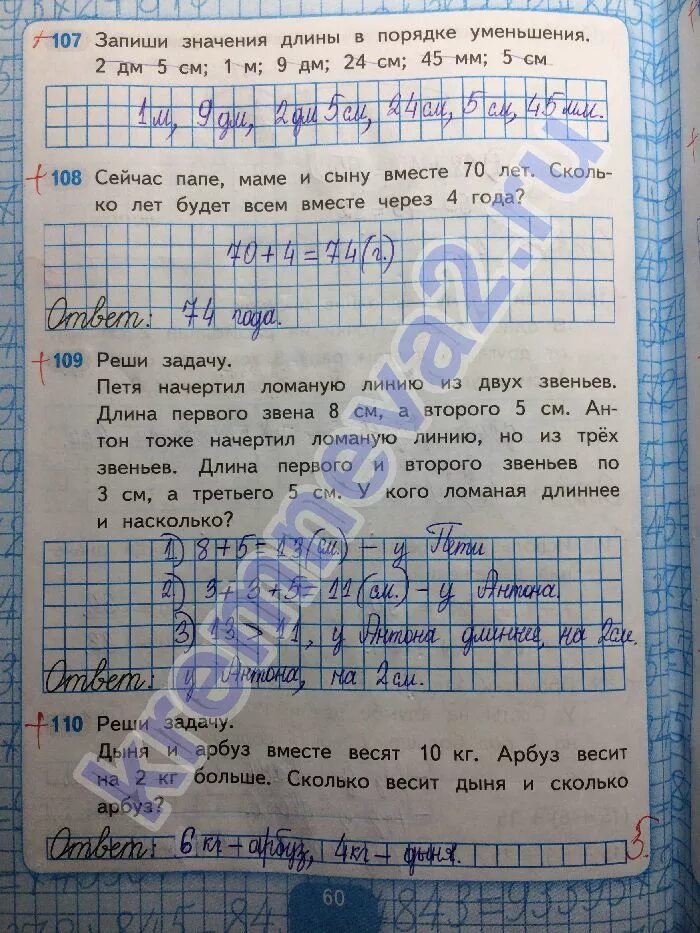 107 Запиши значения длины в порядке уменьшения.
2 дм 5 см; 1 м; 9 дм; 24 см; 45 мм; 5 см
1м, 9 дм, 2дм 5см, 24см, 5 см, 45мм.
108 Сейчас папе, маме и сыну вместе 70 лет. Сколь-
ко лет будет всем вместе через 4 года?
70+4=74(г.)
Ответ: 74 года.
109 Реши задачу.
Петя начертил ломаную линию из двух звеньев.
Длина первого звена 8 см, а второго 5 см. Ан-
тон тоже начертил ломаную линию, но из трёх
звеньев. Длина первого и второго звеньев по
3 см, а третьего 5 см. У кого ломаная длиннее
и насколько?
1) 8+5=13(см.) – у Пети
2) 3+3+5=11(см.) – у Антона.
3) 13>11, у Антона длиннее, на 2см.
Ответ: у Антона, на 2см.
110 Реши задачу.
Дыня и арбуз вместе весят 10 кг. Арбуз весит
на 2 кг больше. Сколько весит дыня и сколько
арбуз?
Ответ: 6 кг – арбуз, 4кг – дыня.
5.
60
kremneva2.ru